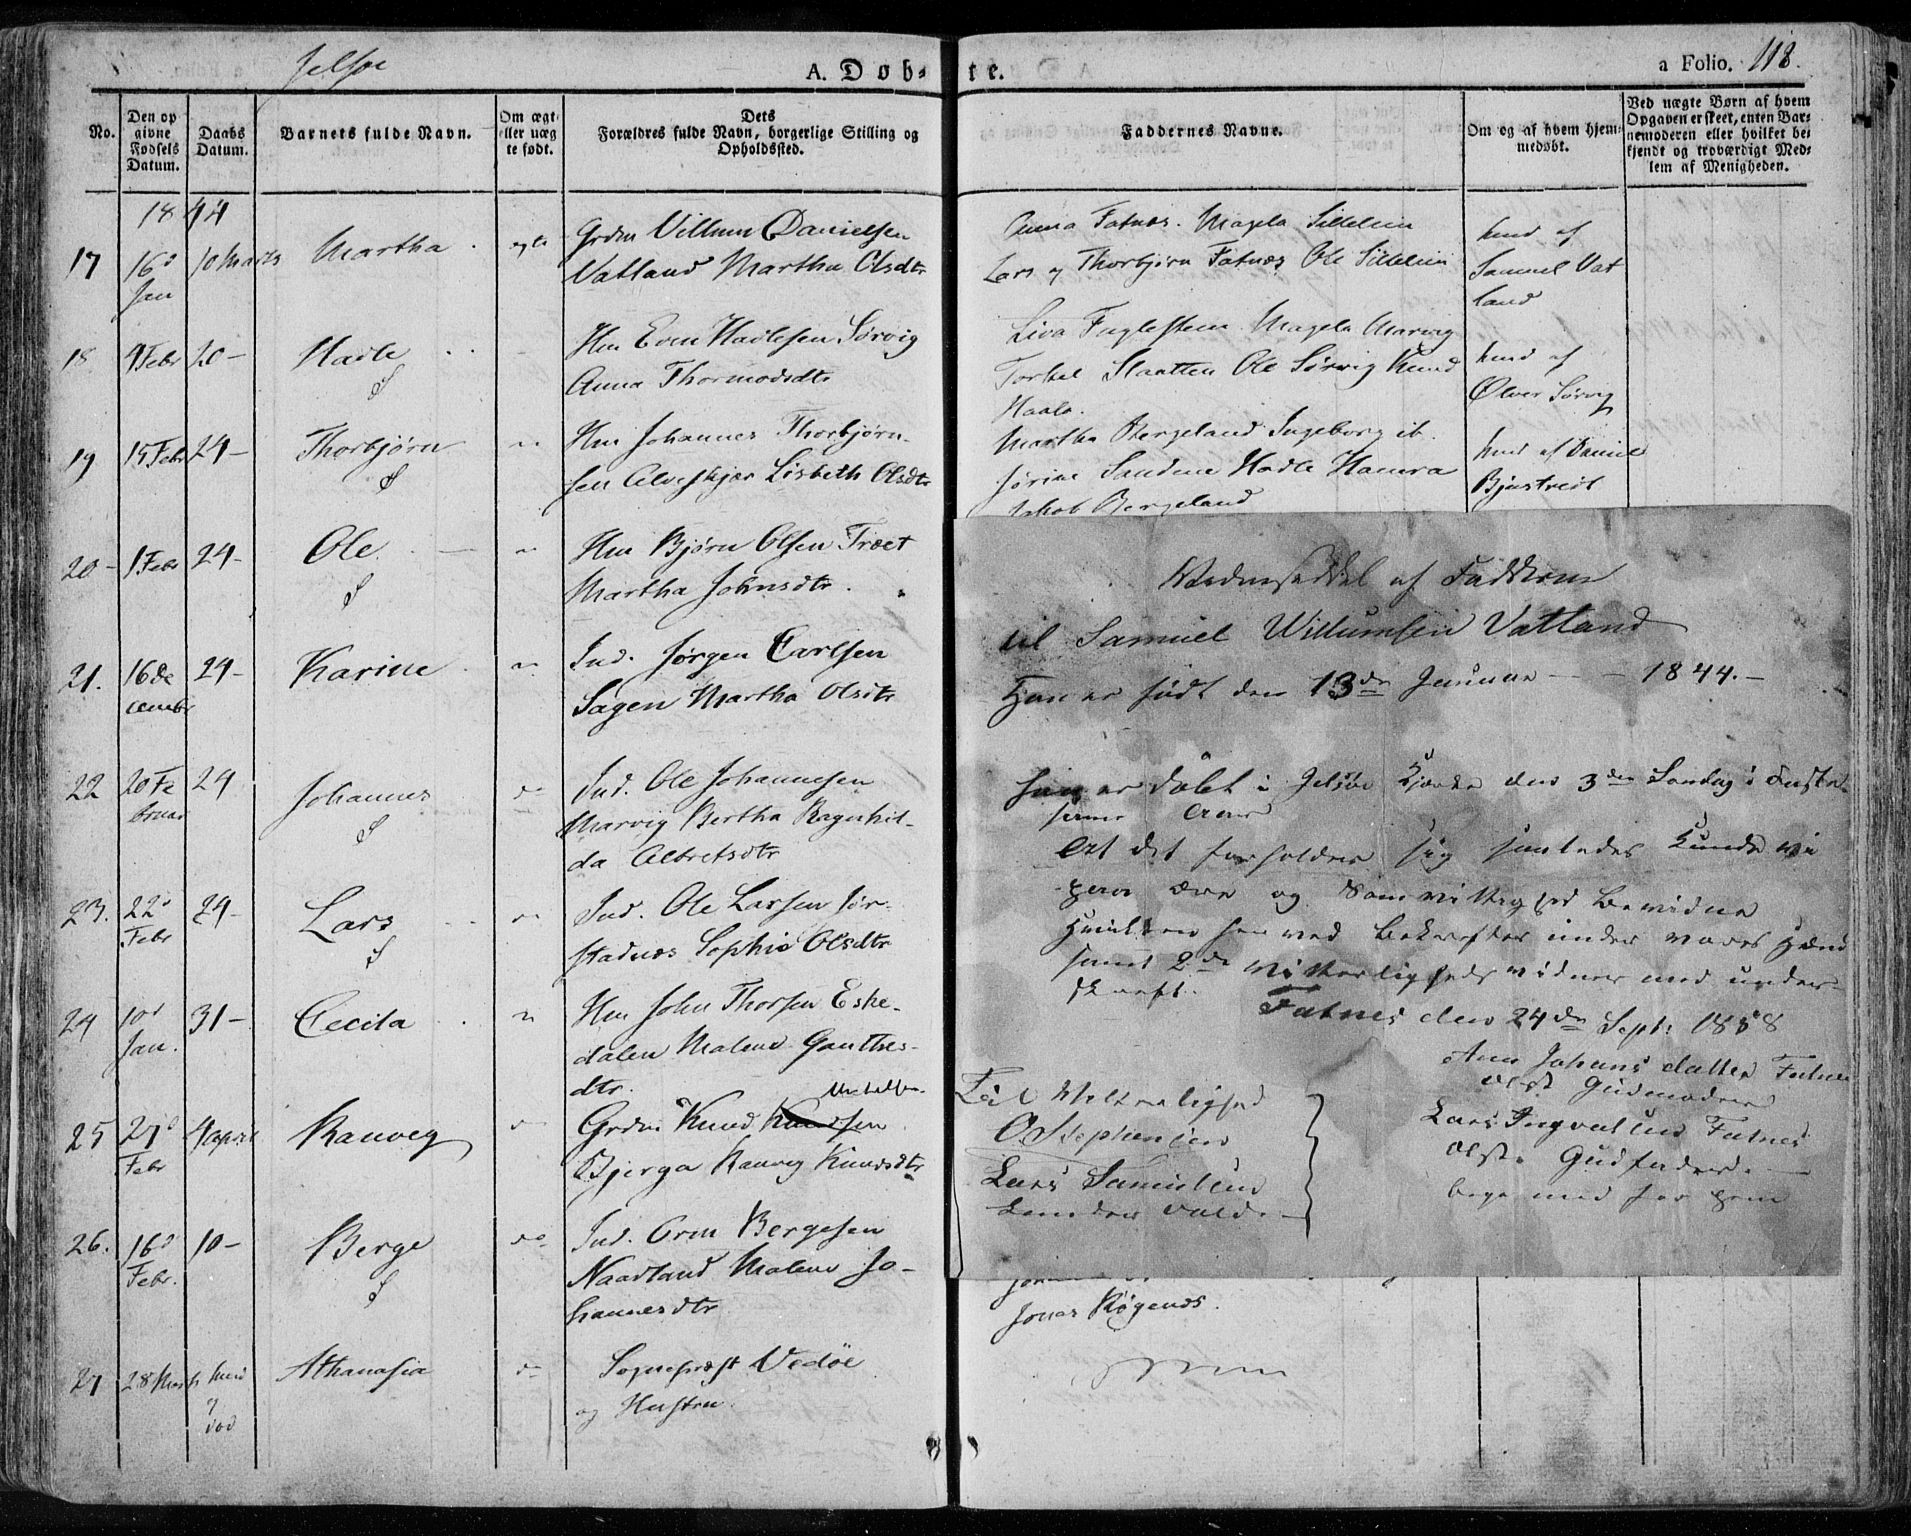 Jelsøe
A. Døb-
te.
a Folio. 118.
No.
Den op
givne
Fødsels
Datum.
Daabs
Datum.
Barnets fulde Navn.
Om ægt
eller uæg
te født.
Dets
Forældres fulde Navn, borgerlige Stilling og
Opholdssted.
Faddernes Navne.
Om og af hvem hjem-
medøbt.
Ved uægte Børn af hvem
Opgaven er skeet, enten Bar-
nemoderen eller hvilket be-
kjendt og troværdigt Med-
lem af Menigheden.
1844
17
16d
Jan
10 Marts
Martha
egte
Grdm Villum Danielsen
Vatland Martha Olsdtr
Anna Fatnæs. Magela
Lars og Thorbjørn Fatnæs Ole
hmd af
Samuel Vat
land
18
9 Febr
20-
Hadle
S
Hm Even Hadlesen Sørvig
Anna Thormodsdtr
Liva Fuglesteen Magela Marvig
Torkel Slaatten Ole Sørvig Knud
Haala.
hmd af
Ølver Sørvig
19
15 Febr
24-
Thorbjørn
S
Hm Johannes Thorbjørn-
sen Alveskjær Lisbeth Olsdtr
Martha Bergeland Ingeborg ib.
Jørine Hadle Hamra
Jakob Bergeland
hmd af Daniel
20-
1 Febr
24-
Ole
S
Hm Bjørn Olsen Træet
Martha Johnsdtr.
21.
16 De
cembr
24-
Karine
Ind. Jørgen Carlsen
Sagen Martha Olsdtr
22
20 Fe
bruar
24
Johannes
S
do
Ind. Ole Johannesen
Marvig Bertha Ragnhil-
da Albretsdtr
23.
22d
Febr
24-
Lars
S
Ind. Ole Larsen Sør-
stadnæs Sophie Olsdtr
24
10d
Jan.
31-
Cecila
Hm John Thorsen Eske-
dalen Malene Gauthes-
dtr.
25
27d
Febr
4 april
Ranveg
Grdm Knud Knudsen
Michelsen
Bjerga Ranveg Knudsdtr
26.
16d
Febr.
10-
Berge
S
do
Ind. Orm Bergesen
Naadland Malene Jo-
hannesdtr
Jonas Røgenæs.
27
28 Marts
hmd
og
død
Athanasia
do
Sognepræst Vedøe
og Hustru
af Fadderne
til Samuel Willumsen Vatland
Han er født den 13de Januar - - 1844.-
Han er døbt i Jelsøe Kjærke den 3die Søndag i Faste
samme Aar
At det forholder sig saaledes Kunde vi
paa ære og Samvittighed Bevidne
Hvilket her ved Bekræftes under vores Hænd
samt 2de Vitterligheds vidner med under-
skreft.
Fatnes den 24de Sept: 1858
Ane Johans datter Fatnes
Gudmoder
Til Vitterlighed
O Stephensen
Lars Samulsen
Lars Ingvalsen Fatnes
Gudfader.